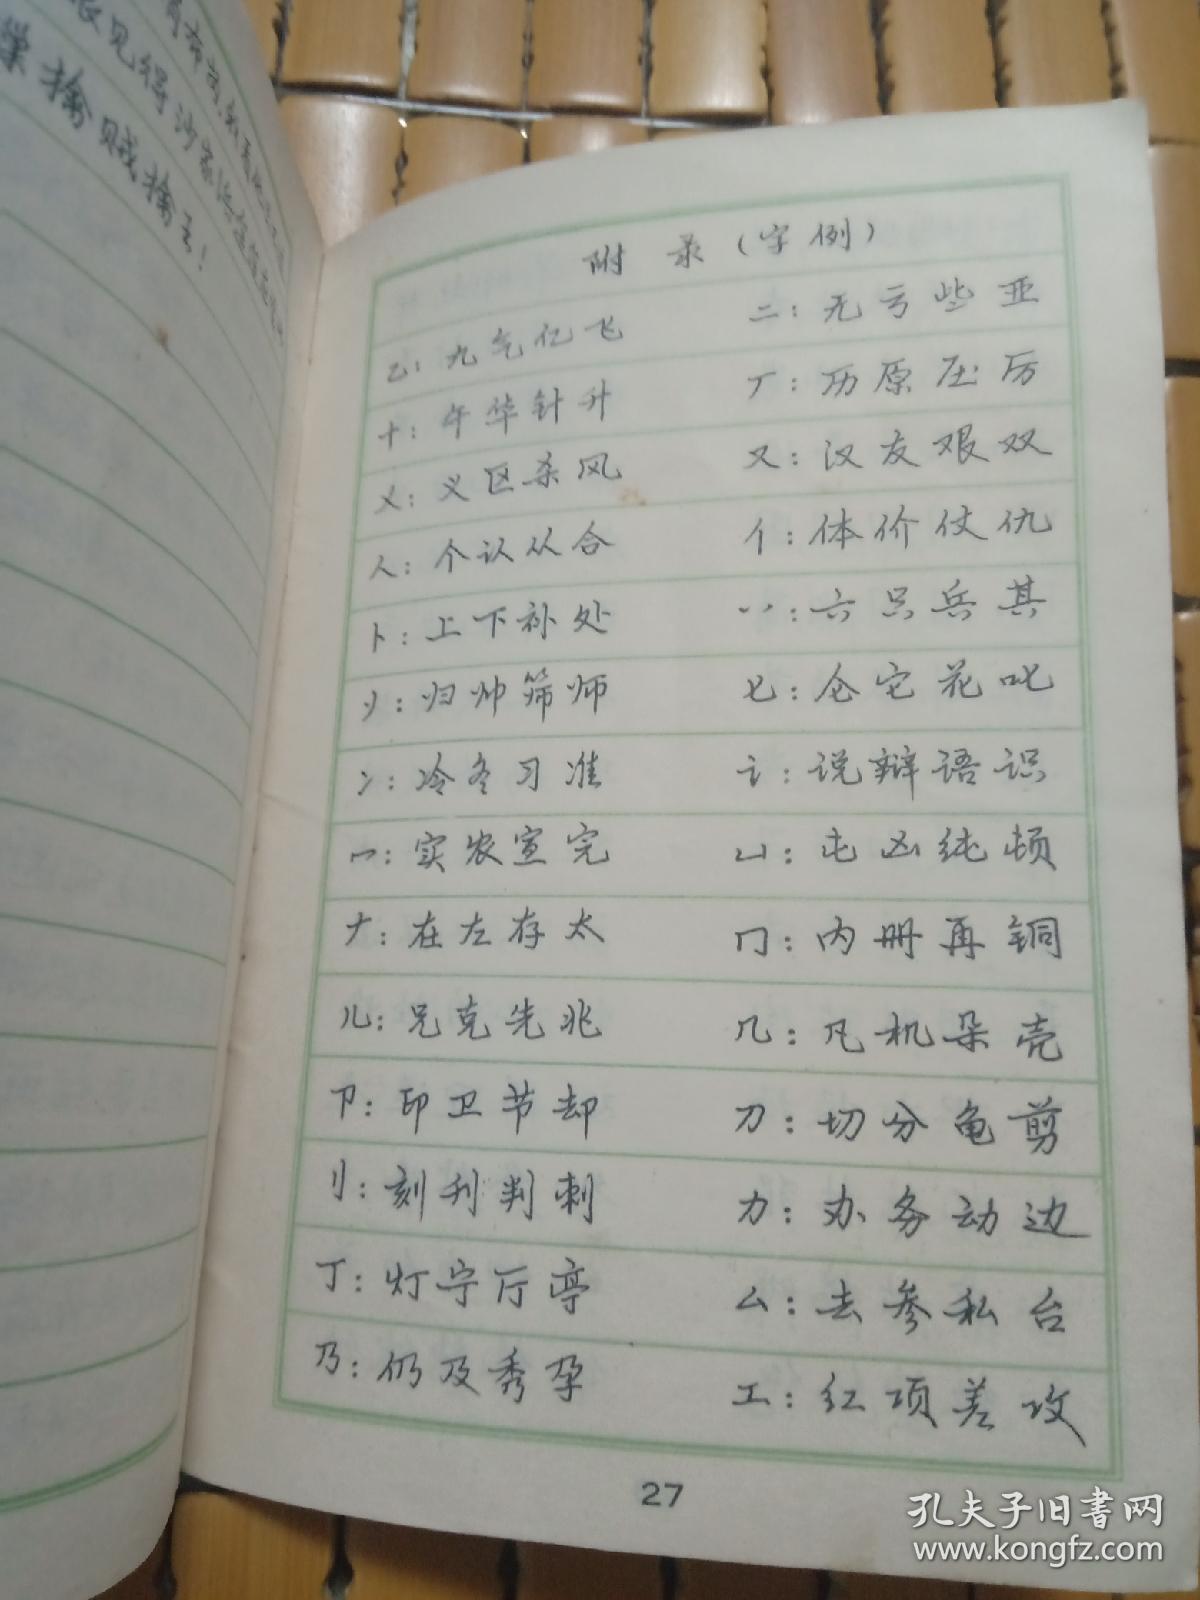 巢擒贼擒王！
附录（字例）
乙：九气亿飞 二：无亏些亚
十：午华针升 厂：历原压厉
乂：义区杀风 又：汉友艰双
人：个认从合 亻：体价仗仇
卜：上下补处 八：六只兵其
刂：归帅筛师 匕：仑它花叱
冫：冷冬习准 讠：说辩语识
冖：实农宣完 凵：屯凶纯顿
ナ：在左存太 冂：内册再铜
儿：兄克先兆 几：凡机朵壳
卩：印卫节却 刀：切分龟剪
刂：刻利判刺 力：办务动边
丁：灯宁厅亭 厶：去参私台
乃：仍及秀孕 工：红项差攻
27
孔夫子旧书网
www.kongfz.com